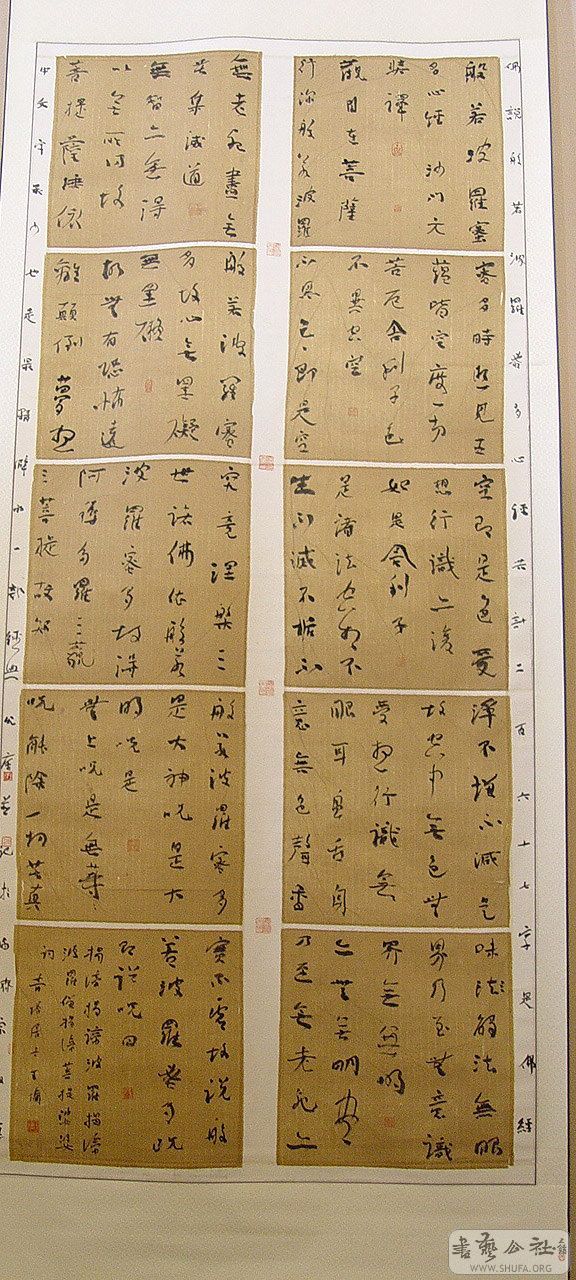 佛說般若波羅蜜多心經共計二百六十七字是佛經
般若波羅蜜
多心經沙门元
奘譯
觀自在菩薩
行深般若波羅
蜜多時照見五
蘊皆空度一切
苦厄舍利子色
不異空空
不異色色即是空
空即是色受
想行識亦復
如是舍利子
是諸法空相不
生不滅不垢不
淨不增不減是
故空中無色無
受想行識無
眼耳鼻舌身
意無色聲香
味觸法無眼
界乃至無意識
界無無明
亦無無明盡
乃至無老死亦
無老死盡無
苦集滅道
無智亦無得
以無所得故
菩提薩埵依
般若波羅蜜
多故心無罣礙
無罣礙
故無有恐怖遠
離顛倒夢想
究竟涅槃三
世諸佛依般若
波羅蜜多故得
阿耨多羅三藐
三菩提故知
般若波羅蜜多
是大神咒是大
明咒是
無上咒是無等等
咒能除一切苦真
實不虛故說般
若波羅蜜多咒
即說咒曰
揭諦揭諦波羅揭諦
波羅僧揭諦菩提薩婆
訶
中文字最少也是最精闢的一部經典
書藝公社
WWW.SHUFA.ORG